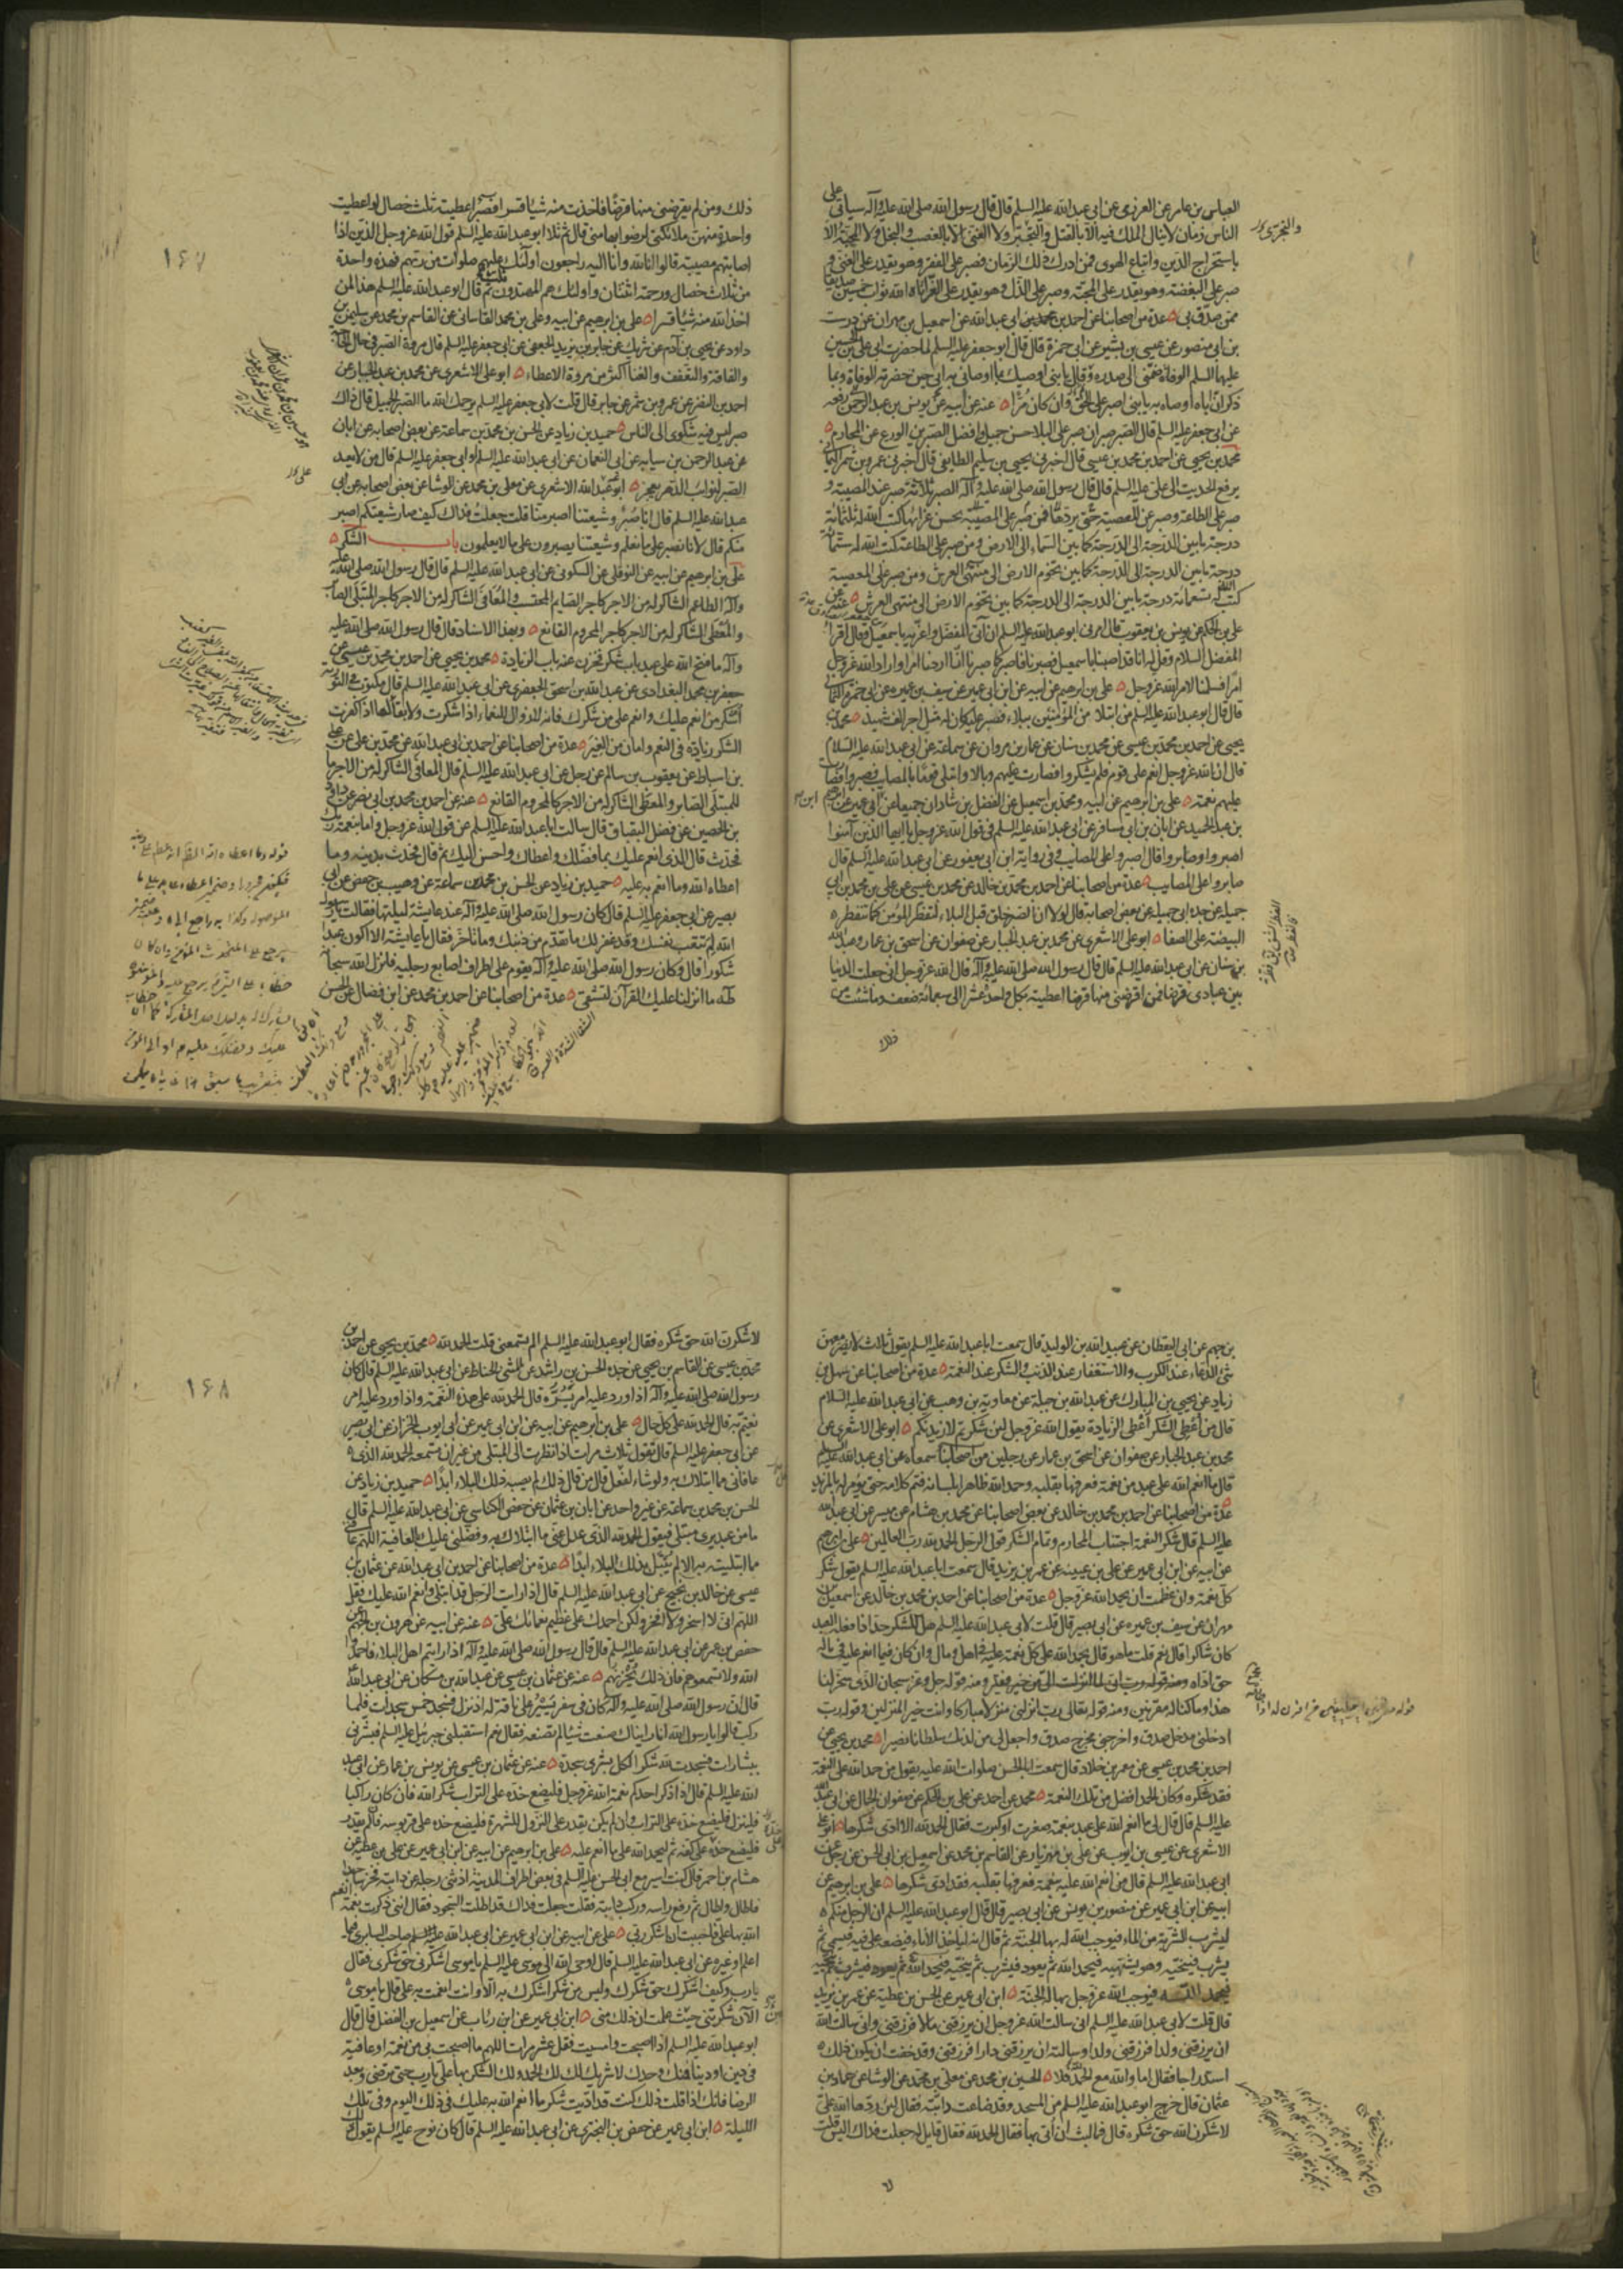 العباس بن عامر عن العرزمى عن ابى عبد الله عليه السلم قال قال رسول الله صلى الله عليه وآله سياتى على
الناس زمان لا ينال الملك فيه الا بالقتل والتجبر ولا الغنى الا بالغصب والبخل ولا المحبة الا
باستخراج الدين واتباع الهوى فمن ادرك ذلك الزمان فصبر على الفقر وهو يقدر على الغنى و
صبر على البغضة وهو يقدر على المحبة وصبر على الذل وهو يقدر على العز اتاه الله ثواب خمسين صديقا
ممن صدق بى عدة من اصحابنا عن احمد بن محمد بن ابى عبد الله عن اسمعيل بن مهران عن درست
بن ابى منصور عن عيسى بن بشير عن ابى حمزة قال قال ابو جعفر عليه السلم لما حضرت ابى على بن الحسين
عليهما السلم الوفاة ضمنى الى صدره وقال يا بنى اوصيك بما اوصانى به ابى حين حضرته الوفاة وبما
ذكر ان اباه اوصاه به يا بنى اصبر على الحق وان كان مرا عنه عن ابيه عن يونس بن عبد الرحمن رفعه
عن ابى جعفر عليه السلم قال الصبر صبران صبر على البلاء حسن جميل وافضل الصبرين الورع عن المحارم
محمد بن يحيى عن احمد بن محمد بن عيسى قال اخبرنى يحيى بن سليم الطايفى قال اخبرنى عمرو بن شمر اليمانى
يرفع الحديث الى على عليه السلم قال قال رسول الله صلى الله عليه وآله الصبر ثلاثة صبر عند المصيبة و
صبر على الطاعة وصبر عن المعصية فمن صبر على المصيبة حتى يردها بحسن عزائها كتب الله له ثلثمائة
درجة ما بين الدرجة الى الدرجة كما بين السماء الى الارض ومن صبر على الطاعة كتب الله له ستمائة
درجة ما بين الدرجة الى الدرجة كما بين تخوم الارض الى منتهى العرش ومن صبر على المعصية
كتب الله له تسعمائة درجة ما بين الدرجة الى الدرجة كما بين تخوم الارض الى منتهى العرش عنه عن
على بن الحكم عن يونس بن يعقوب قال امرنى ابو عبد الله عليه السلم ان آتى المفضل واعزيه باسمعيل فقال اقرا
المفضل السلام وقل له انا قد اصبنا باسمعيل فصبرنا فاصبر كما صبرنا انا اردنا امرا واراد الله عز وجل
امرا فسلمنا لامر الله عز وجل على بن ابرهيم عن ابيه عن ابن ابى عمير عن سيف بن عميره عن ابى حمزة الثمالى
قال قال ابو عبد الله عليه السلم من ابتلا من المؤمنين ببلاء فصبر عليه كان له مثل اجر الف شهيد محمد بن
يحيى عن احمد بن محمد بن عيسى عن محمد بن سنان عن عمار بن مروان عن سماعة عن ابى عبد الله عليه السلام
قال ان الله عز وجل انعم على قوم فلم يشكروا فصارت عليهم وبالا وابتلى قوما بالمصايب فصبروا فصارت
عليهم نعمة على بن ابرهيم عن ابيه ومحمد بن اسمعيل عن الفضل بن شاذان جميعا عن ابن ابى عمير عن ابرهيم
بن عبد الحميد عن ابان بن ابى مسافر عن ابى عبد الله عليه السلم فى قول الله عز وجل يا ايها الذين آمنوا
اصبروا وصابروا قال اصبروا على المصايب وفى رواية ابن ابى يعفور عن ابى عبد الله عليه السلم قال
صابروا على المصايب عدة من اصحابنا عن احمد بن محمد بن خالد عن محمد بن عيسى عن على بن محمد بن ابى
جميله عن جده ابى جميله عن بعض اصحابه قال لولا ان الصبر خلق قبل البلاء لتفطر المؤمن كما تتفطر
البيضة على الصفا ابو على الاشعرى عن محمد بن عبد الجبار عن صفوان عن اسحق بن عمار وعبد الله
بن سنان عن ابى عبد الله عليه السلم قال قال رسول الله صلى الله عليه وآله قال الله عز وجل انى جعلت الدنيا
بين عبادى قرضا فمن اقرضنى منها قرضا اعطيته بكل واحدة عشرا الى سبعمائة ضعف وما شئت من
ذلك
ذلك ومن لم يقرضنى منها قرضا فاخذت منه شيئا قسرا فصبر اعطيته ثلث خصال لو اعطيت
واحدة منهن ملائكتى لرضوا بها منى قال ثم تلا ابو عبد الله عليه السلم قول الله عز وجل الذين اذا
اصابتهم مصيبة قالوا انا لله وانا اليه راجعون اولئك عليهم صلوات من ربهم فهذه واحدة
من ثلاث خصال ورحمة اثنتان واولئك هم المهتدون ثلث ثم قال ابو عبد الله عليه السلم هذا لمن
اخذ الله منه شيئا قسرا على بن ابرهيم عن ابيه وعلى بن محمد القاسانى عن القاسم بن محمد عن سليمن بن
داود عن يحيى بن آدم عن شريك عن جابر بن يزيد الجعفى عن ابى جعفر عليه السلم قال مروة الصبر فى حال الحاجة
والفاقة والتعفف والغنا اكثر من مروة الاعطاء ابو على الاشعرى عن محمد بن عبد الجبار عن
احمد بن النضر عن عمرو بن شمر عن جابر قال قلت لابى جعفر عليه السلم يرحمك الله ما الصبر الجميل قال ذاك
صبر ليس فيه شكوى الى الناس حميد بن زياد عن الحسن بن محمد بن سماعة عن بعض اصحابه عن ابان
عن عبد الرحمن بن سيابه عن ابى النعمان عن ابى عبد الله عليه السلم او ابى جعفر عليه السلم قال من لا يعد
الصبر لنوائب الدهر يعجز ابو عبد الله الاشعرى عن معلى بن محمد عن الوشا عن بعض اصحابه عن ابى
عبد الله عليه السلم قال انا صبر وشيعتنا اصبر منا قلت جعلت فداك كيف صار شيعتكم اصبر
منكم قال لانا نصبر على ما نعلم وشيعتنا يصبرون على ما لا يعلمون باب الشكر
على بن ابرهيم عن ابيه عن النوفلى عن السكونى عن ابى عبد الله عليه السلم قال قال رسول الله صلى الله عليه
وآله الطاعم الشاكر له من الاجر كاجر الصايم المحتسب والمعافى الشاكر له من الاجر كاجر المبتلى الصابر
والمعطى الشاكر له من الاجر كاجر المحروم القانع وبهذا الاسناد قال قال رسول الله صلى الله عليه
وآله ما فتح الله على عبد باب شكر فخزن عنه باب الزيادة محمد بن يحيى عن احمد بن محمد بن عيسى عن
جعفر بن محمد البغدادى عن عبد الله بن اسحق الجعفرى عن ابى عبد الله عليه السلم قال مكتوب فى التورية
اشكر من انعم عليك وانعم على من شكرك فانه لا زوال للنعماء اذا شكرت ولا بقاء لها اذا كفرت
الشكر زيادة فى النعم وامان من الغير عدة من اصحابنا عن احمد بن ابى عبد الله عن محمد بن على عن على
بن اسباط عن يعقوب بن سالم عن رجل عن ابى عبد الله عليه السلم قال المعافى الشاكر له من الاجر ما
للمبتلى الصابر والمعطى الشاكر له من الاجر كالمحروم القانع عنه عن احمد بن محمد بن ابى نصر عن داود
بن الحصين عن فضل البقباق قال سالت ابا عبد الله عليه السلم عن قول الله عز وجل واما بنعمة ربك
فحدث قال الذى انعم عليك بما فضلك واعطاك واحسن اليك ثم قال فحدث بدينه وما
اعطاه الله وما انعم به عليه حميد بن زياد عن الحسن بن محمد بن سماعة عن وهيب بن حفص عن ابى
بصير عن ابى جعفر عليه السلم قال كان رسول الله صلى الله عليه وآله عند عايشة ليلتها فقالت يا رسول
الله لم تتعب نفسك وقد غفر لك ما تقدم من ذنبك وما تاخر فقال يا عايشة الا اكون عبدا
شكورا قال وكان رسول الله صلى الله عليه وآله يقوم على اطراف اصابع رجليه فانزل الله سبحانه
طه ما انزلنا عليك القرآن لتشقى عدة من اصحابنا عن احمد بن محمد عن ابن فضال عن الحسن
١٤٧
بن جهم عن ابى اليقظان عن عبيد الله بن الوليد قال سمعت ابا عبد الله عليه السلم يقول ثلاث لا يضر معهن
شئ الدعاء عند الكرب والاستغفار عند الذنب والشكر عند النعمة عدة من اصحابنا عن سهل بن
زياد عن يحيى بن المبارك عن عبد الله بن جبلة عن معاوية بن وهب عن ابى عبد الله عليه السلام
قال من اعطى الشكر اعطى الزيادة يقول الله عز وجل لئن شكرتم لازيدنكم ابو على الاشعرى عن
محمد بن عبد الجبار عن صفوان عن اسحق بن عمار عن رجلين من اصحابنا سمعاه عن ابى عبد الله عليه السلم
قال ما انعم الله على عبد من نعمة فعرفها بقلبه وحمد الله ظاهرا بلسانه فتم كلامه حتى يؤمر له بالمزيد
عدة من اصحابنا عن احمد بن محمد بن خالد عن بعض اصحابنا عن محمد بن هشام عن ميسر عن ابى عبد الله
عليه السلم قال شكر النعمة اجتناب المحارم وتمام الشكر قول الرجل الحمد لله رب العالمين على بن ابرهيم
عن ابيه عن ابن ابى عمير عن على بن عيينه عن عمر بن يزيد قال سمعت ابا عبد الله عليه السلم يقول شكر
كل نعمة وان عظمت ان يحمد الله عز وجل عدة من اصحابنا عن احمد بن محمد بن خالد عن اسمعيل بن
مهران عن سيف بن عميره عن ابى بصير قال قلت لابى عبد الله عليه السلم هل للشكر حد اذا فعله العبد
كان شاكرا قال نعم قلت ما هو قال يحمد الله على كل نعمة عليه فى اهل ومال وان كان فيما انعم عليه فى ماله
حق اداه ومنه قوله رب انى لما انزلت الى من خير فقير ومنه قوله جل وعز سبحان الذى سخر لنا
هذا وما كنا له مقرنين ومنه قوله تعالى رب انزلنى منزلا مباركا وانت خير المنزلين وقوله رب
ادخلنى مدخل صدق واخرجنى مخرج صدق واجعل لى من لدنك سلطانا نصيرا محمد بن يحيى عن
احمد بن محمد بن عيسى عن معمر بن خلاد قال سمعت ابا الحسن صلوات الله عليه يقول من حمد الله على النعمة
فقد شكره وكان الحمد افضل من تلك النعمة محمد عن احمد عن على بن الحكم عن صفوان الجمال عن ابى عبد الله
عليه السلم قال قال لى ما انعم الله على عبد بنعمة صغرت او كبرت فقال الحمد لله الا ادى شكرها ابو على
الاشعرى عن عيسى بن ايوب عن على بن مهزيار عن القاسم بن محمد عن اسمعيل بن ابى الحسن عن رجل عن
ابى عبد الله عليه السلم قال من انعم الله عليه بنعمة فعرفها بقلبه فقد ادى شكرها على بن ابرهيم عن
ابيه عن ابن ابى عمير عن منصور بن يونس عن ابى بصير قال قال ابو عبد الله عليه السلم ان الرجل منكم
ليشرب الشربة من الماء فيوجب الله له بها الجنة ثم قال انه لياخذ الاناء فيضعه على فيه فيسمى ثم
يشرب فينحيه وهو يشتهيه فيحمد الله ثم يعود فيشرب ثم ينحيه فيحمد الله ثم يعود فيشرب ثم ينحيه
فيحمد الله فيوجب الله عز وجل بها له الجنة ابن ابى عمير عن الحسن بن عطية عن عمر بن يزيد
قال قلت لابى عبد الله عليه السلم انى سالت الله عز وجل ان يرزقنى مالا فرزقنى وانى سالت الله
ان يرزقنى ولدا فرزقنى ولدا وسالته ان يرزقنى دارا فرزقنى وقد خفت ان يكون ذلك
استدراجا فقال اما والله مع الحمد فلا الحسين بن محمد عن معلى بن محمد عن الوشا عن حماد بن
عثمان قال خرج ابو عبد الله عليه السلم من المسجد وقد ضاعت دابته فقال لئن ردها الله على
لاشكرن الله حق شكره قال فما لبث ان اتى بها فقال الحمد لله فقال قايل له جعلت فداك اليس قلت
لا
لاشكرن الله حق شكره فقال ابو عبد الله عليه السلم الم تسمعنى قلت الحمد لله محمد بن يحيى عن احمد بن
محمد بن عيسى عن القاسم بن يحيى عن جده الحسن بن راشد عن المثنى الحناط عن ابى عبد الله عليه السلم قال كان
رسول الله صلى الله عليه وآله اذا ورد عليه امر يسره قال الحمد لله على هذه النعمة واذا ورد عليه امر
يغتم به قال الحمد لله على كل حال على بن ابرهيم عن ابيه عن ابن ابى عمير عن ابى ايوب الخزاز عن ابى بصير
عن ابى جعفر عليه السلم قال تقول ثلاث مرات اذا نظرت الى المبتلى من غير ان تسمعه الحمد لله الذى
عافانى مما ابتلاك به ولو شاء لفعل قال من قال ذلك لم يصبه ذلك البلاء ابدا حميد بن زياد عن
الحسن بن محمد بن سماعة عن غير واحد عن ابان بن عثمان عن حفص الكناسى عن ابى عبد الله عليه السلم قال
ما من عبد يرى مبتلى فيقول الحمد لله الذى عدل عنى ما ابتلاك به وفضلنى عليك بالعافية اللهم عافنى
مما ابتليته به الا لم يبتل بذلك البلاء ابدا عدة من اصحابنا عن احمد بن ابى عبد الله عن عثمان بن
عيسى عن خالد بن نجيح عن ابى عبد الله عليه السلم قال اذا رايت الرجل قد ابتلى وانعم الله عليك فقل
اللهم انى لا اسخر ولا افخر ولكن احمدك على عظيم نعمائك على عنه عن ابيه عن هرون بن الجهم عن
حفص بن عمر عن ابى عبد الله عليه السلم قال قال رسول الله صلى الله عليه وآله اذا رايتم اهل البلاء فاحمدوا
الله ولا تسمعوهم فان ذلك يحزنهم عنه عن عثمان بن عيسى عن عبد الله بن مسكان عن ابى عبد الله
قال ان رسول الله صلى الله عليه وآله كان فى سفر يسير على ناقة له اذ نزل فسجد خمس سجدات فلما
ركب قالوا يا رسول الله انا رايناك صنعت شيئا لم تصنعه فقال نعم استقبلنى جبرئيل عليه السلم فبشرنى
ببشارات فسجدت لله شكرا لكل بشرى سجدة عنه عن عثمان بن عيسى عن يونس بن عمار عن ابى عبد
الله عليه السلم قال اذا ذكر احدكم نعمة الله عز وجل فليضع خده على التراب شكرا لله فان كان راكبا
فلينزل فليضع خده على التراب وان لم يكن يقدر على النزول للشهرة فليضع خده على قربوسه فان لم يقدر
فليضع خده على كفه ثم ليحمد الله على ما انعم عليه على بن ابرهيم عن ابيه عن ابن ابى عمير عن على بن عطيه عن
هشام بن احمر قال كنت اسير مع ابى الحسن عليه السلم فى بعض اطراف المدينة اذ ثنى رجله عن دابته فخر ساجدا
فاطال واطال ثم رفع راسه وركب دابته فقلت جعلت فداك قد اطلت السجود فقال اننى ذكرت نعمة انعم
الله بها على فاحببت ان اشكر ربى على عن ابيه عن ابن ابى عمير عن ابى عبد الله عليه السلم صاحب السابرى فيما
اعلم او غيره عن ابى عبد الله عليه السلم قال اوحى الله الى موسى عليه السلم يا موسى اشكرنى حق شكرى فقال
يا رب وكيف اشكرك حق شكرك وليس من شكر اشكرك به الا وانت انعمت به على قال يا موسى
الآن شكرتنى حيث علمت ان ذلك منى ابن ابى عمير عن ابن رئاب عن اسمعيل بن الفضل قال قال
ابو عبد الله عليه السلم اذا اصبحت وامسيت فقل عشر مرات اللهم ما اصبحت بى من نعمة او عافية
فى دين او دنيا فمنك وحدك لا شريك لك لك الحمد ولك الشكر بها على يا رب حتى ترضى وبعد
الرضا فانك اذا قلت ذلك كنت قد اديت شكر ما انعم الله به عليك فى ذلك اليوم وفى تلك
الليلة ابن ابى عمير عن حفص بن البخترى عن ابى عبد الله عليه السلم قال كان نوح عليه السلم يقول ذلك
١٤٨